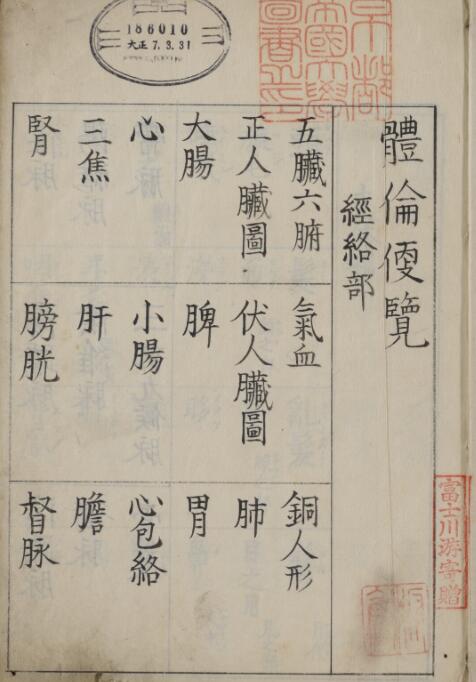 186010
大正 7.3.31
京都
帝國大學
圖書之印
體倫便覽
經絡部
五臟六腑
氣血
銅人形
正人臟圖
伏人臟圖
肺
大腸
脾
胃
心
小腸
心包絡
三焦
肝
膽
腎
膀胱
督脉
富士川游寄贈